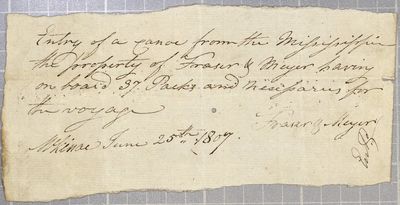 Entry of a canoe from the Mississippi
the property of Fraser & Meyer having
on board 37 Packs and Necessaries for
the voyage
Fraser & Meyer
Mckinac June 25th 1807